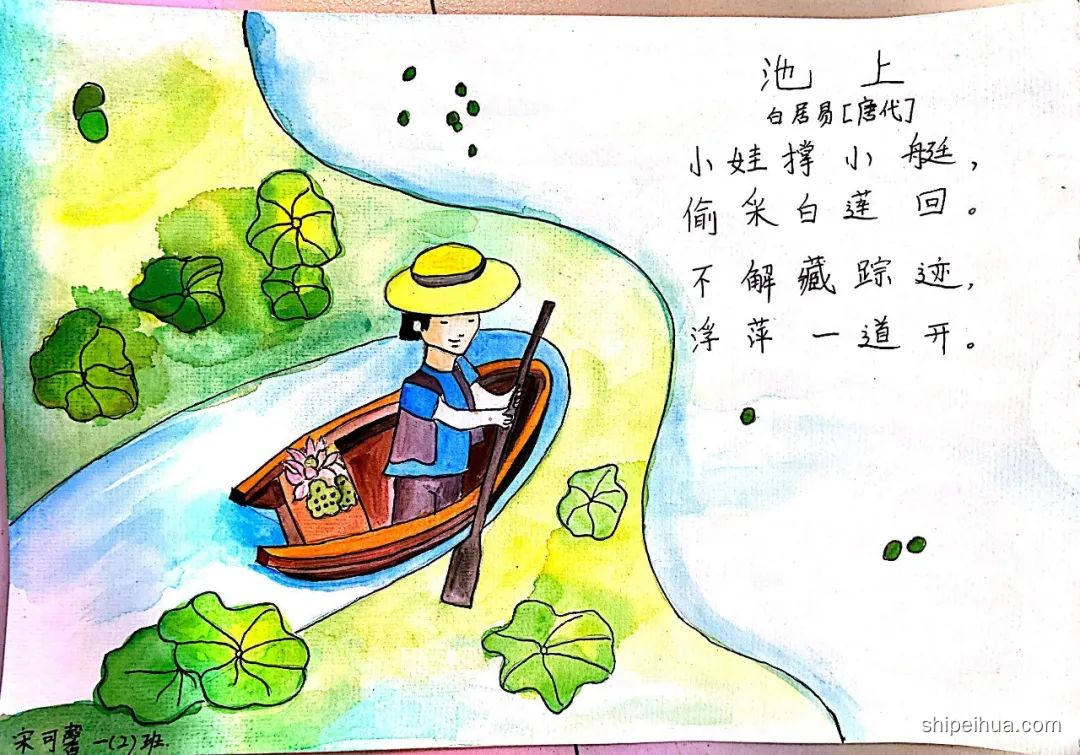 池上
白居易[唐代]
小娃撑小艇，
偷采白莲回。
不解藏踪迹，
浮萍一道开。
宋可馨 一(2)班.
shipeihua.com